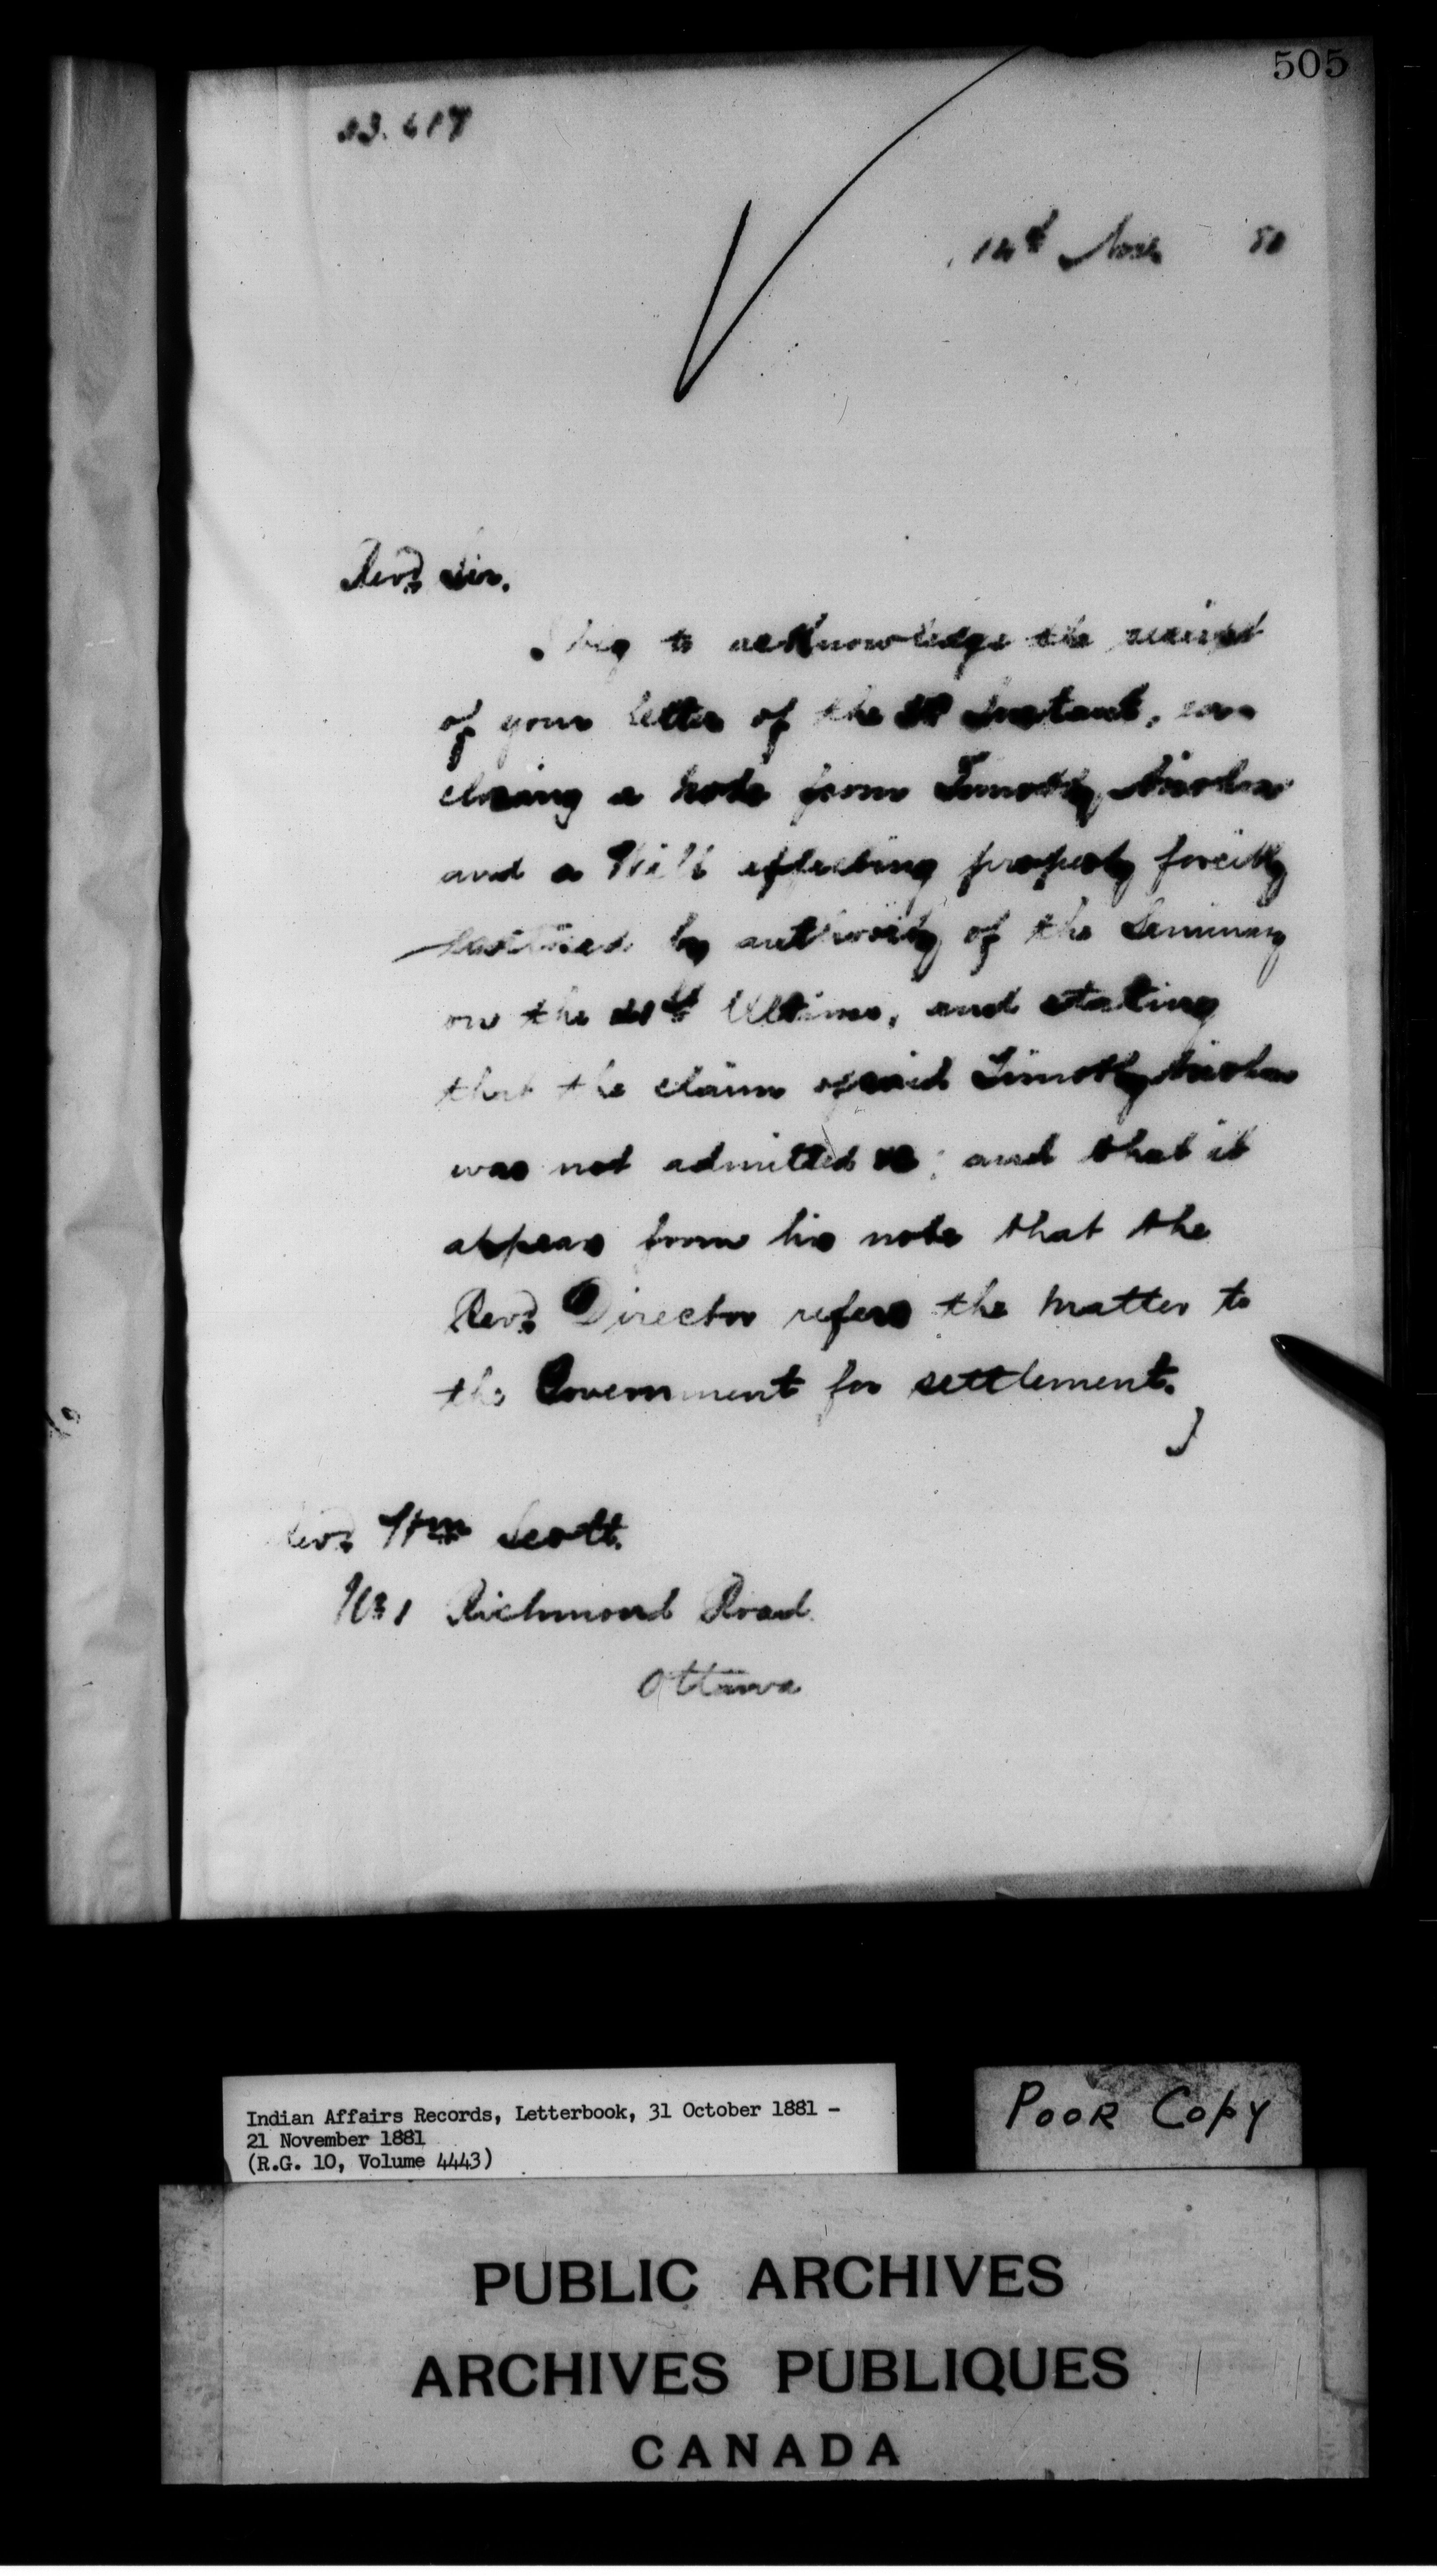 505
14th Novr
Revd. Sir.
I beg to acknowledge the receipt
of your letter of the Instant, en-
closing a note from Timothy
and a Will affecting property forcibly
by authority of the Seminary
on the Ultimo, and stating
that the claim of said Timothy
was not admitted; and that it
appears from his note that the
Revd. Director refers the matter to
the Government for settlement.
Revd. Wm Scott.
Richmond Road
Ottawa
Indian Affairs Records, Letterbook, 31 October 1881 -
21 November 1881
(R.G. 10, Volume 4443)
POOR COPY
PUBLIC ARCHIVES
ARCHIVES PUBLIQUES
CANADA